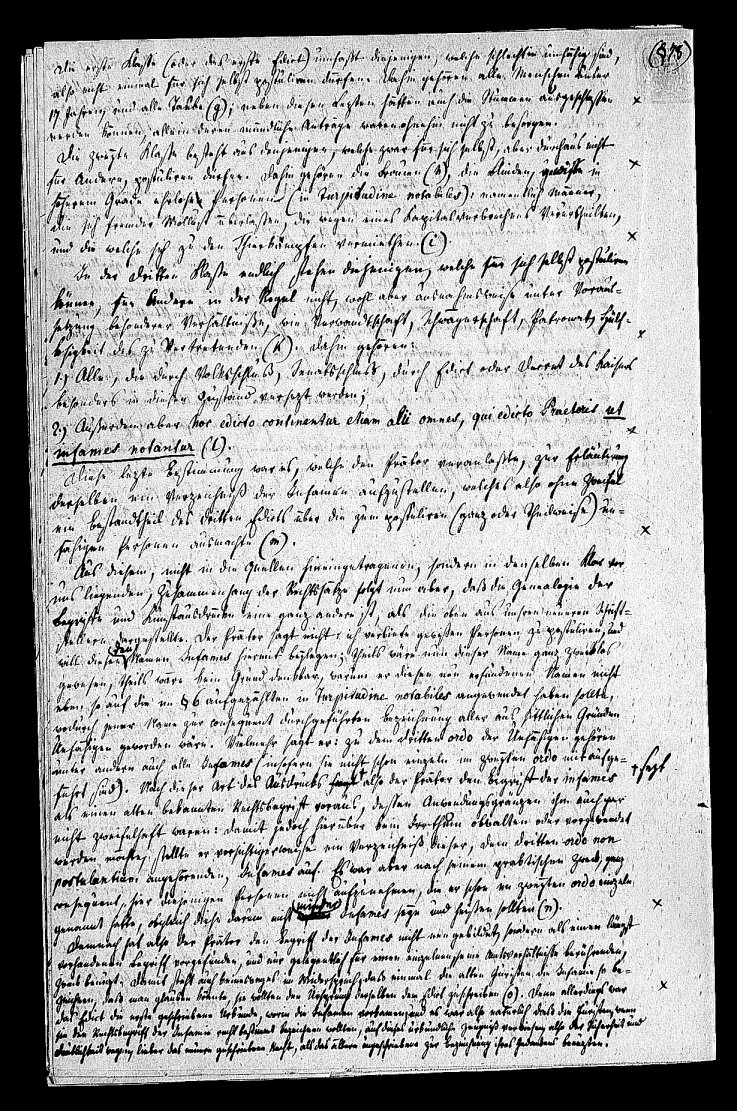 (§78)
Die erste Klasse (oder das erste Edict) umfaßt diejenigen, welche schlechthin unfähig sind,
also nicht einmal für sich selbst postuliren dürfen. Dahin gehören alle Menschen unter
17 Jahren, und alle Taube (g); neben diesen letzten hätten auch die Stummen ausgeschlossen
werden können, allein deren mündliche Anträge waren ohnehin nicht zu besorgen.
Die zweyte Klasse besteht aus denjenigen, welche zwar für sich selbst, aber durchaus nicht
für Andere, postuliren dürfen. Dahin gehören die Frauen (h), die Blinden, gewisse in
höherem Grade ehrlose Personen (in turpitudine notabiles): namentlich Männer,
die sich fremder Wollust überlassen, die wegen eines Kapitalverbrechens Verurtheilten,
und die welche sich zu den Thierkämpfen vermiethen (i).
In der dritten Klasse endlich stehen diejenigen, welche für sich selbst postuliren
können, für Andere in der Regel nicht, wohl aber ausnahmsweise unter Voraus-
setzung besonderer Verhältnisse, wie Verwandtschaft, Schwägerschaft, Patronat, Hülf-
losigkeit des zu Vertretenden (k). Dahin gehören:
1.) Alle, die durch Volksschluß, Senatsschluß, durch Edict oder Decret des Kaisers
besonders in diesen Zustand versetzt werden;
2.) Außerdem aber hoc edicto continentur etiam alii omnes, qui edicto Praetoris ut
infames notantur (l).
Diese letzte Bestimmung war es, welche den Prätor veranlaßte, zur Erläuterung
derselben ein Verzeichniß der Infamen aufzustellen, welches also ohne Zweifel
ein Bestandtheil des dritten Edicts über die zum postuliren (ganz oder theilweise) un-
fähigen Personen ausmachte (m).
Aus diesem, nicht in die Quellen hineingetragenen, sondern in denselben klar vor
uns liegenden, Zusammenhang der Rechtssätze folgt nun aber, daß die Genealogie der
Begriffe und Kunstausdrücke eine ganz andere ist, als die oben aus unsren neueren Schrift-
stellern dargestellte. Der Prätor sagt nicht: ich verbiete gewissen Personen zu postuliren, und
will diesen den Namen Infames hiermit beylegen; theils wäre nun dieser Name ganz zwecklos
gewesen, theils wäre kein Grund denkbar, warum er diesen neu erfundenen Namen nicht
eben so auf die im § 6 aufgezählten in turpitudine notabiles angewendet haben sollte,
wodurch jener Name zur consequent durchgeführten Bezeichnung aller aus sittlichen Gründen
Unfähigen geworden wäre. Vielmehr sagt er: zu dem dritten ordo der Unfähigen gehören
unter andern auch alle Infames (insofern sie nicht schon einzeln im zweyten ordo mit aufge-
führt sind). Nach dieser Art des Ausdrucks + also der Prätor den Begriff der infames
+ setzt
als einen alten bekannten Rechtsbegriff voraus, dessen Anwendungsgränzen ihm auch gar
nicht zweifelhaft waren: damit jedoch hierüber kein Irrthum obwalten oder vorgewendet
werden möchte, stellte er vorsichtigerweise ein Verzeichniß dieser, dem dritten ordo non
postulantium angehörenden, Infames auf. Es war aber nach seinem praktischen Zweck, ganz
consequent, hier diejenigen Personen nicht aufzunehmen, die er schon im zweyten ordo einzeln
genannt hatte, obgleich diese darum nicht minder Infames seyn und heißen sollten (n).
Demnach hat also der Prätor den Begriff der Infames nicht neu gebildet, sondern als einen längst
vorhandenen Begriff vorgefunden, und nur gelegentlich für einen angenommenen Amtsverhältnisse berührenden,
Zweck benutzt. Damit steht auch keineswegs im Widerspruch, daß einmal die alten Juristen die Infamie so be-
zeichnen, daß man glauben könnte, sie wollten den Ursprung derselben dem Edict zuschreiben (o). Denn allerdings war
das Edict die erste geschriebene Urkunde, worin die Infamen vorkamen, und es war also natürlich daß die Juristen, wenn
sie den Rechtsbegriff der Infamie recht bestimmt bezeichnen wollten, auf dieses urkundliche Zeugniß verwiesen, also der Sicherheit und
Deutlichkeit wegen lieber das neuere geschriebene Recht, als das ältere ungeschriebene zur Bezeichnung ihres Gedankens benutzten.